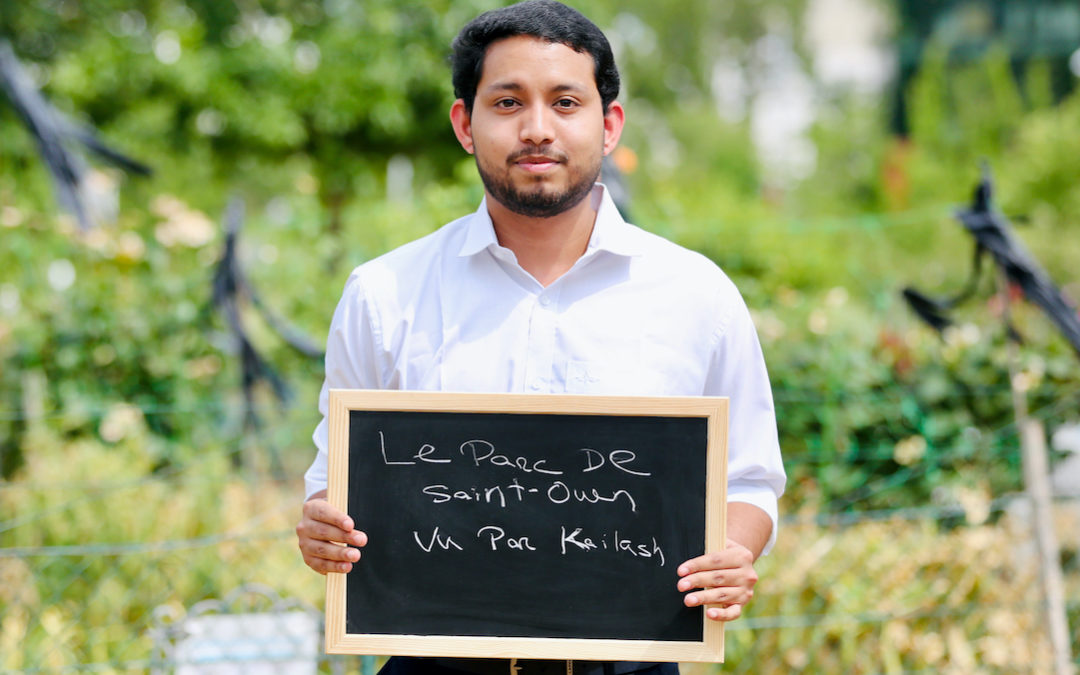 Le Parc De
Saint-Ouen
Vu Par Kailash